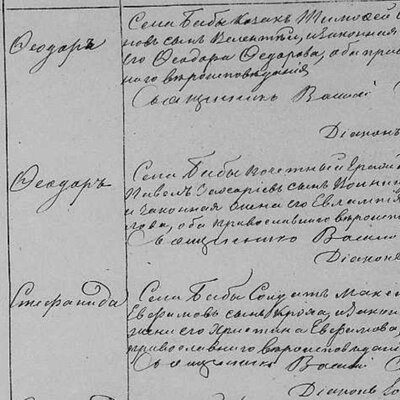 Ѳеодоръ
Села Бабы Козакъ Тимоѳей
новъ сынъ Велентій, и законная
его Ѳеодора Ѳедорова, оба пра
наго вѣроисповѣданія
Священникъ Василі
Діаконъ
Ѳеодоръ
Села Бабы Почетный Граж
Павелъ Захаріевъ сынъ
и законная жена его Евлампія
оба православнаго вѣроисп
Священникъ Васил
Діаконъ
Стефанида
Села Бабы Солдатъ Макс
Евѳимовъ сынъ и закон
жена его Христина Евѳимова
православнаго вѣроисповѣдан
Священникъ Василі
Діаконъ